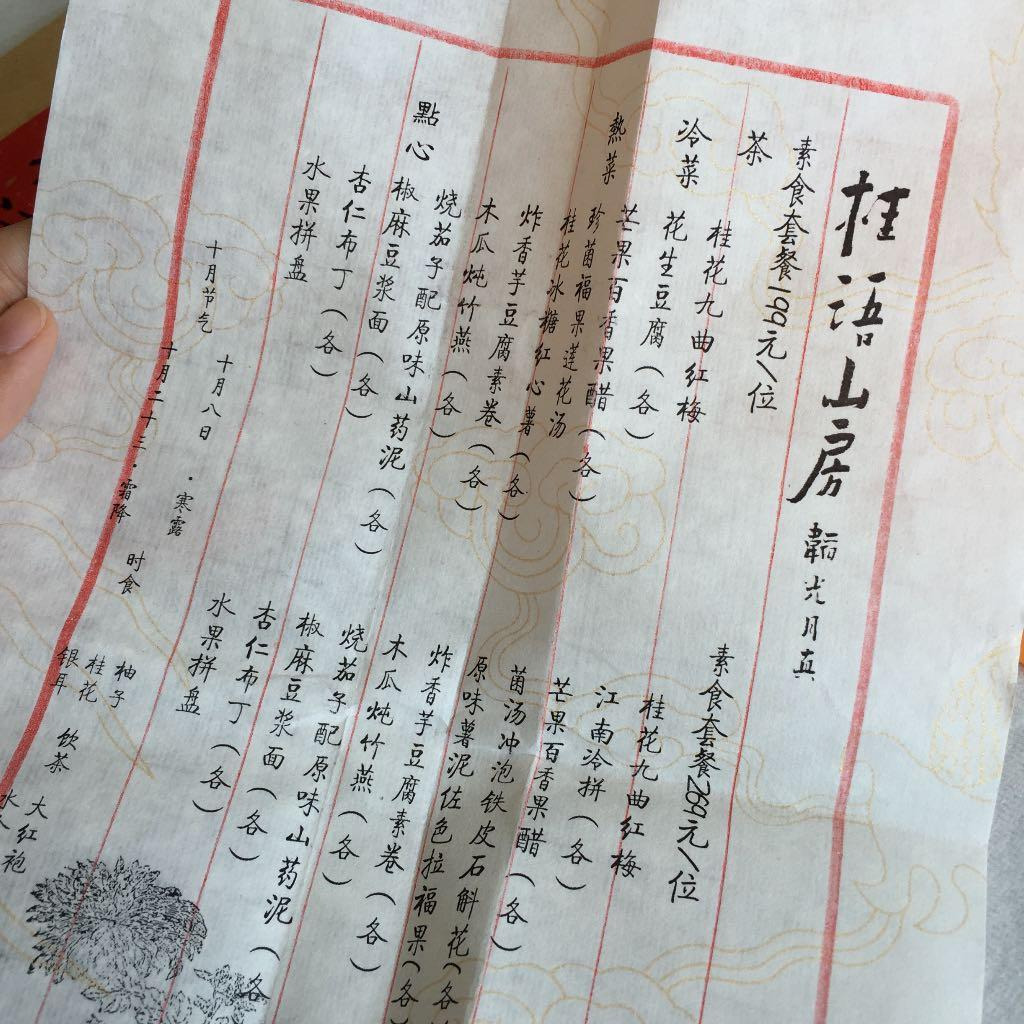 桂语山房
韜光月真
素食套餐199元/位
茶
桂花九曲红梅
冷菜
花生豆腐（各）
芒果百香果醋（各）
熱菜
珍菌福果莲花汤（各）
桂花冰糖红心薯（各）
炸香芋豆腐素卷（各）
木瓜炖竹燕（各）
烧茄子配原味山药泥（各）
點心
椒麻豆浆面（各）
杏仁布丁（各）
水果拼盘
素食套餐269元/位
桂花九曲红梅
江南冷拼（各）
芒果百香果醋（各）
菌汤冲泡铁皮石斛花（各
原味薯泥佐色拉福果（各
炸香芋豆腐素卷（各）
木瓜炖竹燕（各）
烧茄子配原味山药泥（各
椒麻豆浆面（各）
杏仁布丁（各）
水果拼盘
十月节气
十月八日·寒露
十月二十三·霜降
时食
柚子
桂花
银耳
饮茶
大红袍
水